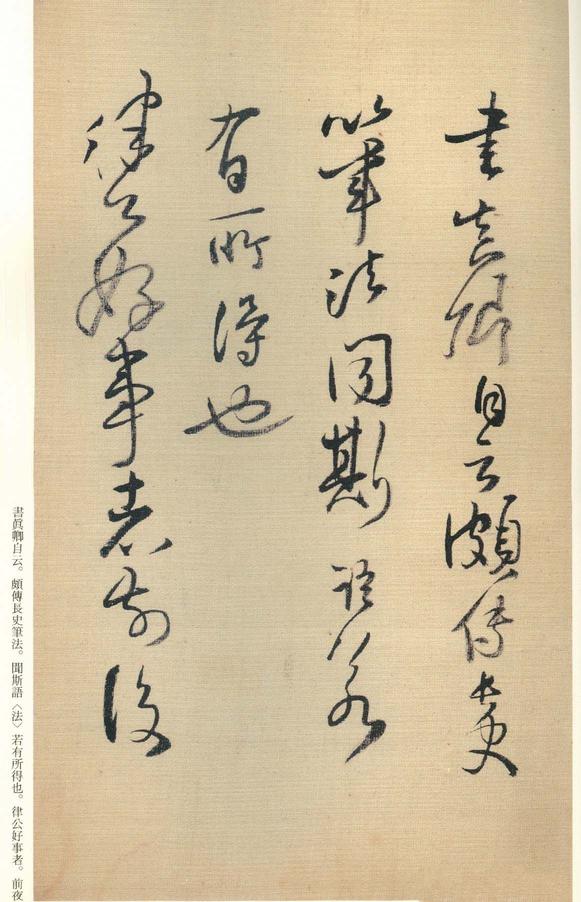 書真卿自云頗傳長史
筆法聞斯語若
有所得也
律公好事者前夜
書眞卿自云。頗傳長史筆法。聞斯語〈法〉若有所得也。律公好事者。前夜